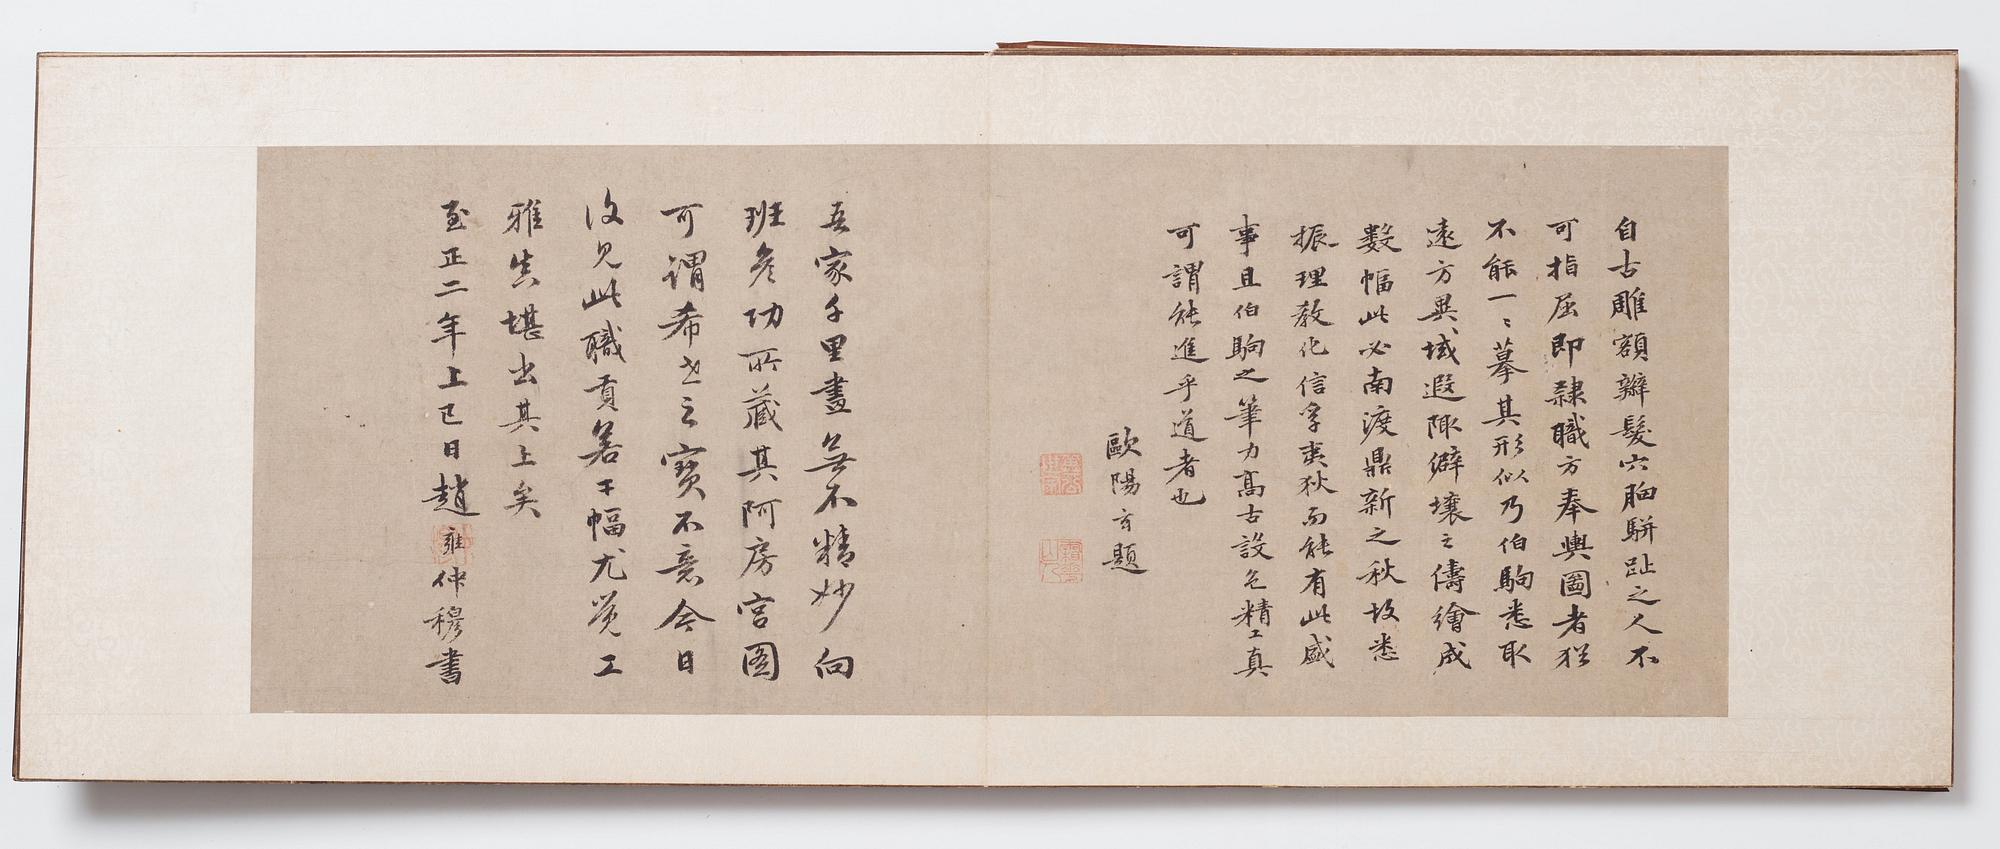 自古雕額辮髮穴胸駢趾之人不
可指屈即隸職方奉輿圖者猶
不能一〻摹其形似乃伯駒悉取
遠方異域遐陬僻壤之儔繪成
數幅此必南渡鼎新之秋故悉
振理教化信孚夷狄而能有此盛
事且伯駒之筆力高古設色精工真
可謂能進乎道者也
歐陽玄題
吾家千里畫無不精妙向
班彥功所藏其阿房宮圖
可謂希世之寶不意今日
復見此職貢若干幅尤覺工
雅真堪出其上矣
至正二年上巳日趙雍仲穆書